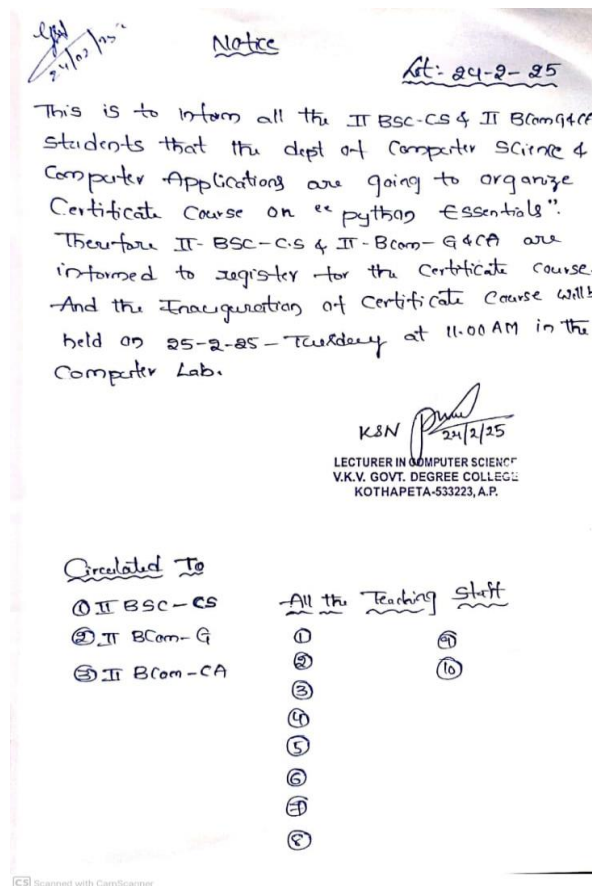 24/02/25
Notice
Dt:- 24-2-25
This is to inform all the II BSC-CS & II BCom G&CA
students that the dept of Computer Science &
Computer Applications are going to organize
Certificate Course on "python Essentials".
Therefore II-BSC-C.S & II-Bcom-G&CA are
informed to register for the Certificate Course.
And the Inauguration of Certificate Course will b
held on 25-2-25-Tuesday at 11.00 AM in the
Computer Lab.
KSN
24/2/25
LECTURER IN COMPUTER SCIENCE
V.K.V. GOVT. DEGREE COLLEGE
KOTHAPETA-533223, A.P.
Circulated To
① II BSC-CS
② II BCom-G
③ II BCom-CA
All the Teaching Staff
①
②
③
④
⑤
⑥
⑦
⑧
⑨
⑩
CS Scanned with CamScanner